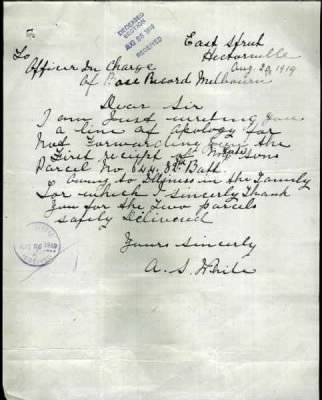 DECEASED
SECTION
AUG 26 1919
RECEIVED
East Street
Hectorville
Aug. 20, 1919
To
Officer In Charge
of Base Record Melbourn
Dear Sir
I am Just writing you
a line of Apology for
Not Forwarding you the
First receipt of My Late Sons
Parcel No 8th Batt
Owing to Illness in the Family
For which I sincerly Thank
You for the Two parcels
safely Delivered
Yours sincerly
A. S. White
AUG 26 1919
RECEIVED